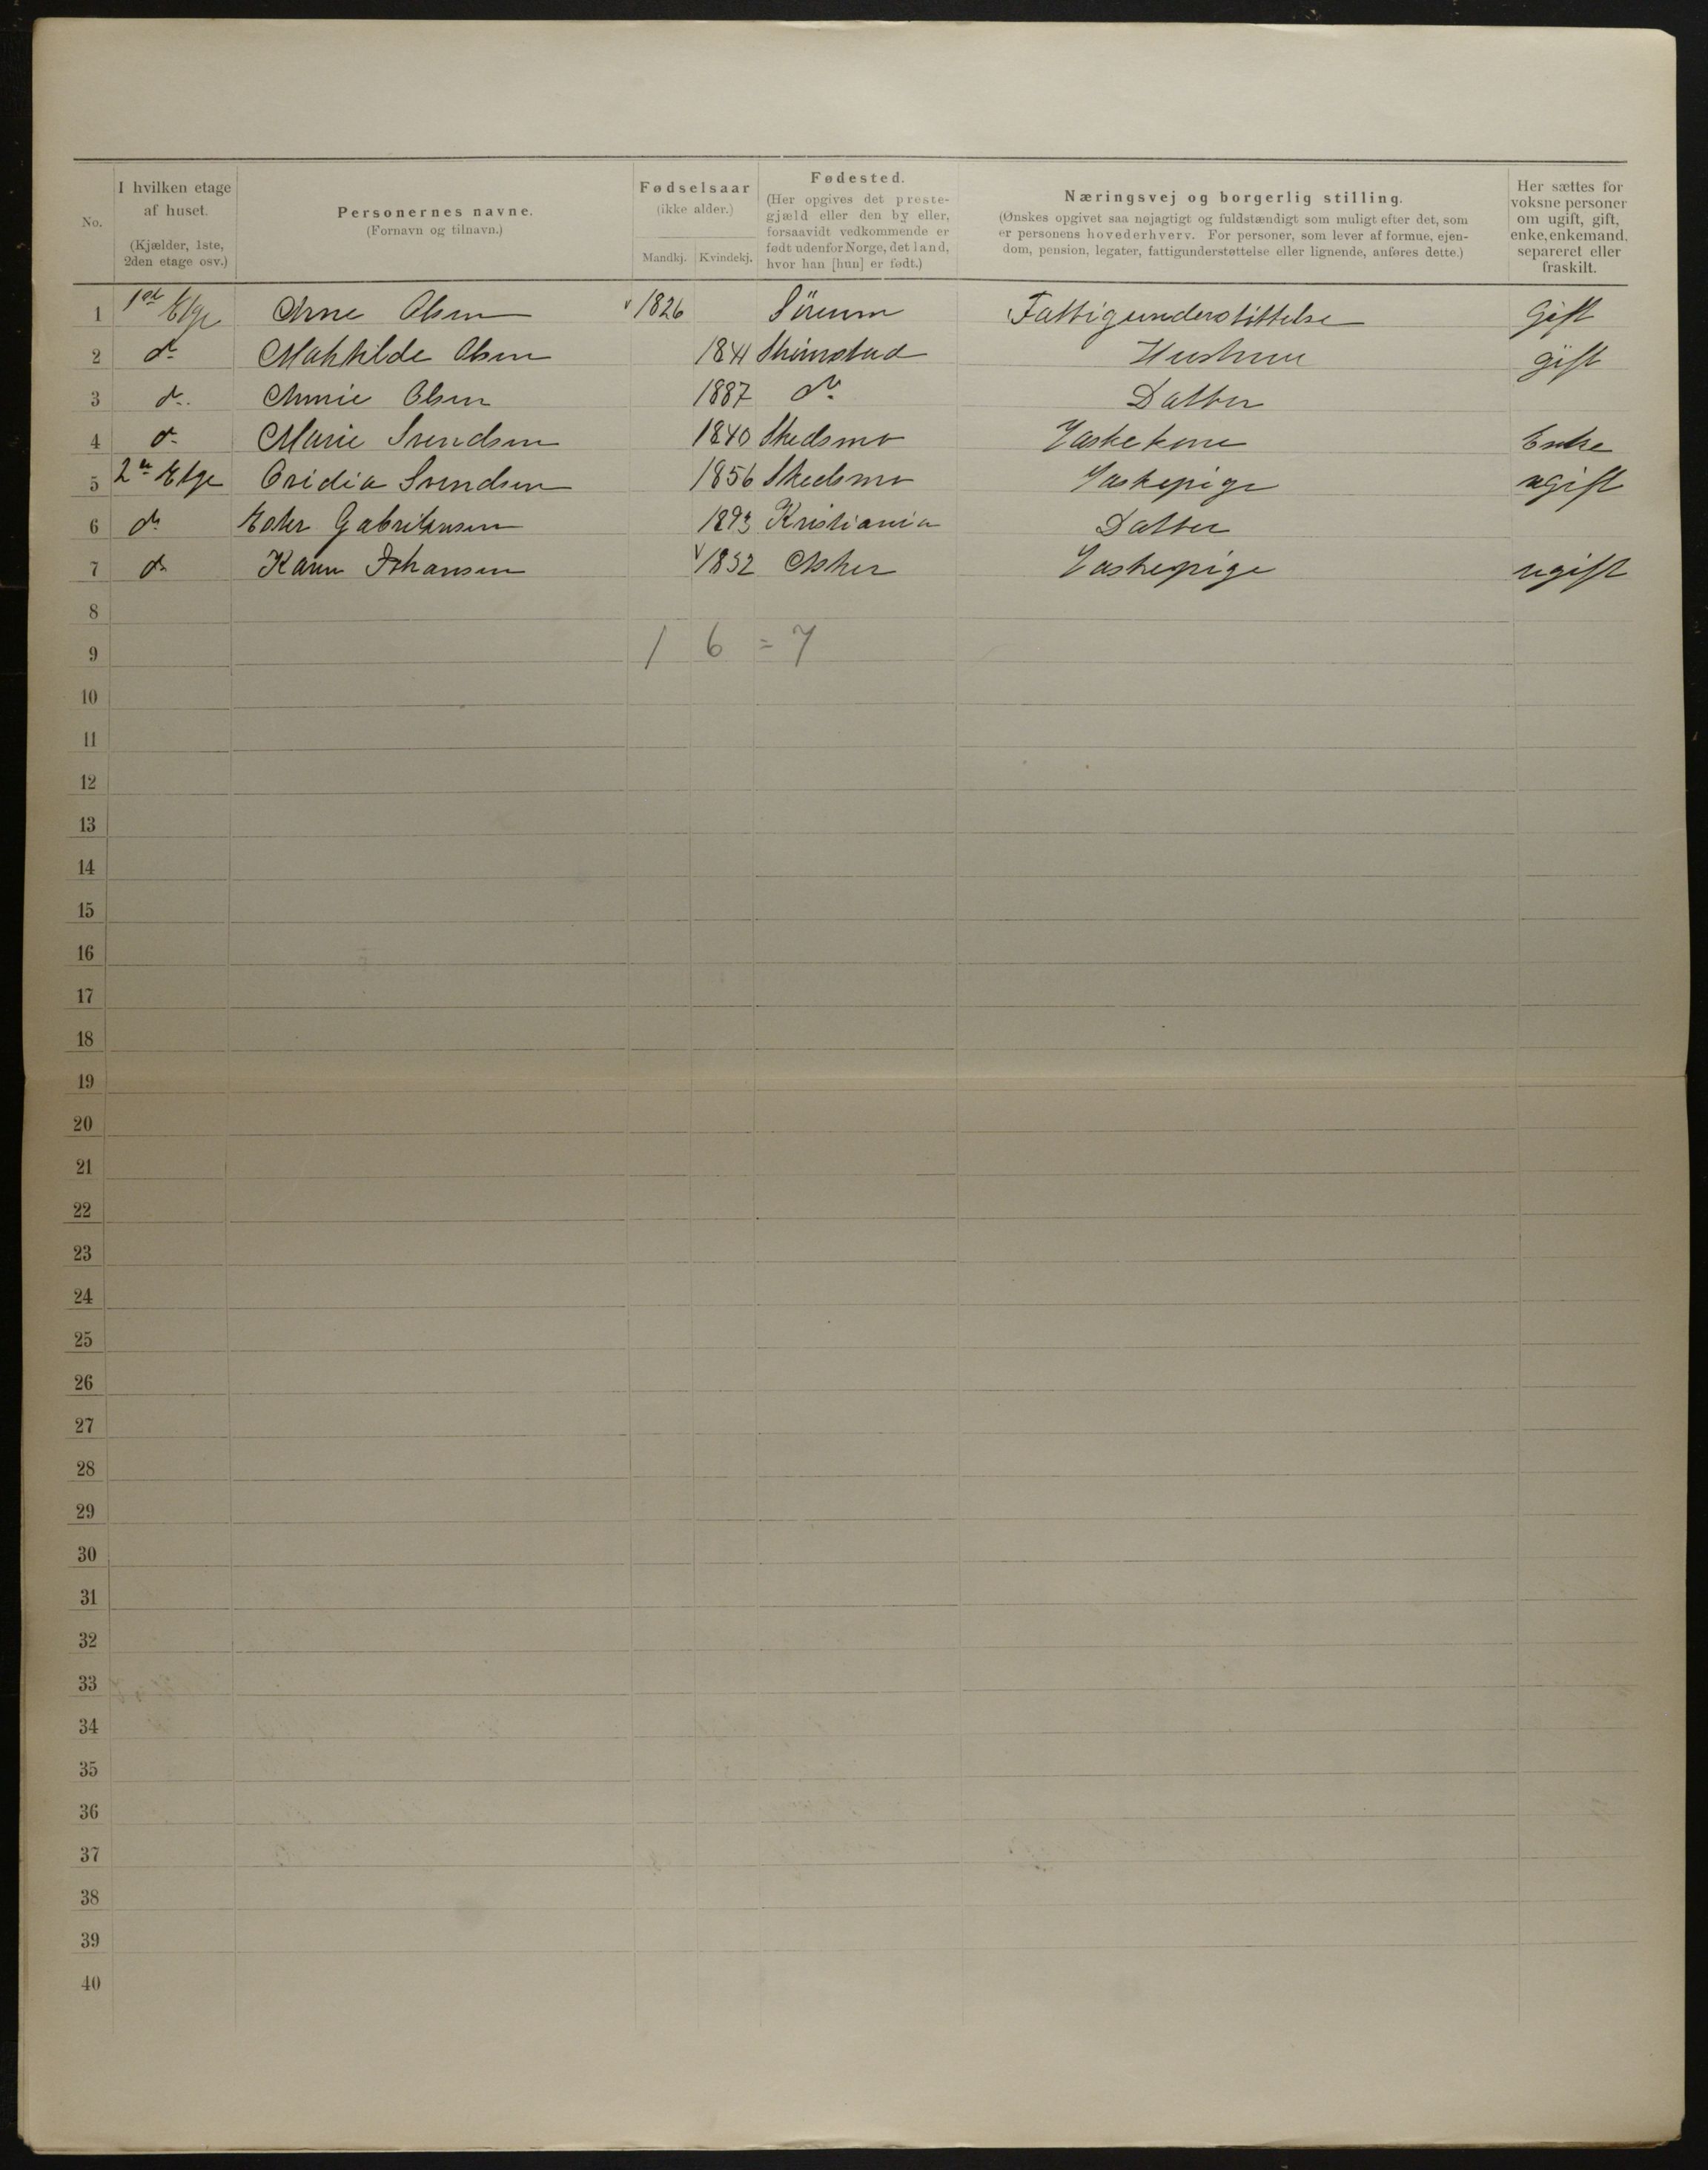 No. I hvilken etage af huset. (Kjælder, 1ste, 2den etage osv.) Personernes navne. (Fornavn og tilnavn.) Fødselsaar (ikke alder.) Mandkj. Kvindekj. Fødested. (Her opgives det prestegjæld eller den by eller, forsaavidt vedkommende er født udenfor Norge, det land, hvor han [hun] er født.) Næringsvej og borgerlig stilling. (Ønskes opgivet saa nøjagtigt og fuldstændigt som muligt efter det, som er personens hovederhverv. For personer, som lever af formue, ejendom, pension, legater, fattigunderstøttelse eller lignende, anføres dette.) Her sættes for voksne personer om ugift, gift, enke, enkemand, separeret eller fraskilt.
1 1st Etge Arne Olsen 1826 Sörum Fattigunderstöttelse Gift
2 do Mathilde Olsen 1841 Hustru gift
3 do Annie Olsen 1887 do Datter
4 do Marie Svendsen 1840 Skedsmo Vaskekone Enke
5 2n Etge Oridia Svendsen 1856 Skedsmo Vaskepige ugift
6 do Ester 1893 Kristiania Datter
7 do Karen Johansen 1832 Asker Vaskepige ugift
8
9 1 6 = 7
10
11
12
13
14
15
16
17
18
19
20
21
22
23
24
25
26
27
28
29
30
31
32
33
34
35
36
37
38
39
40